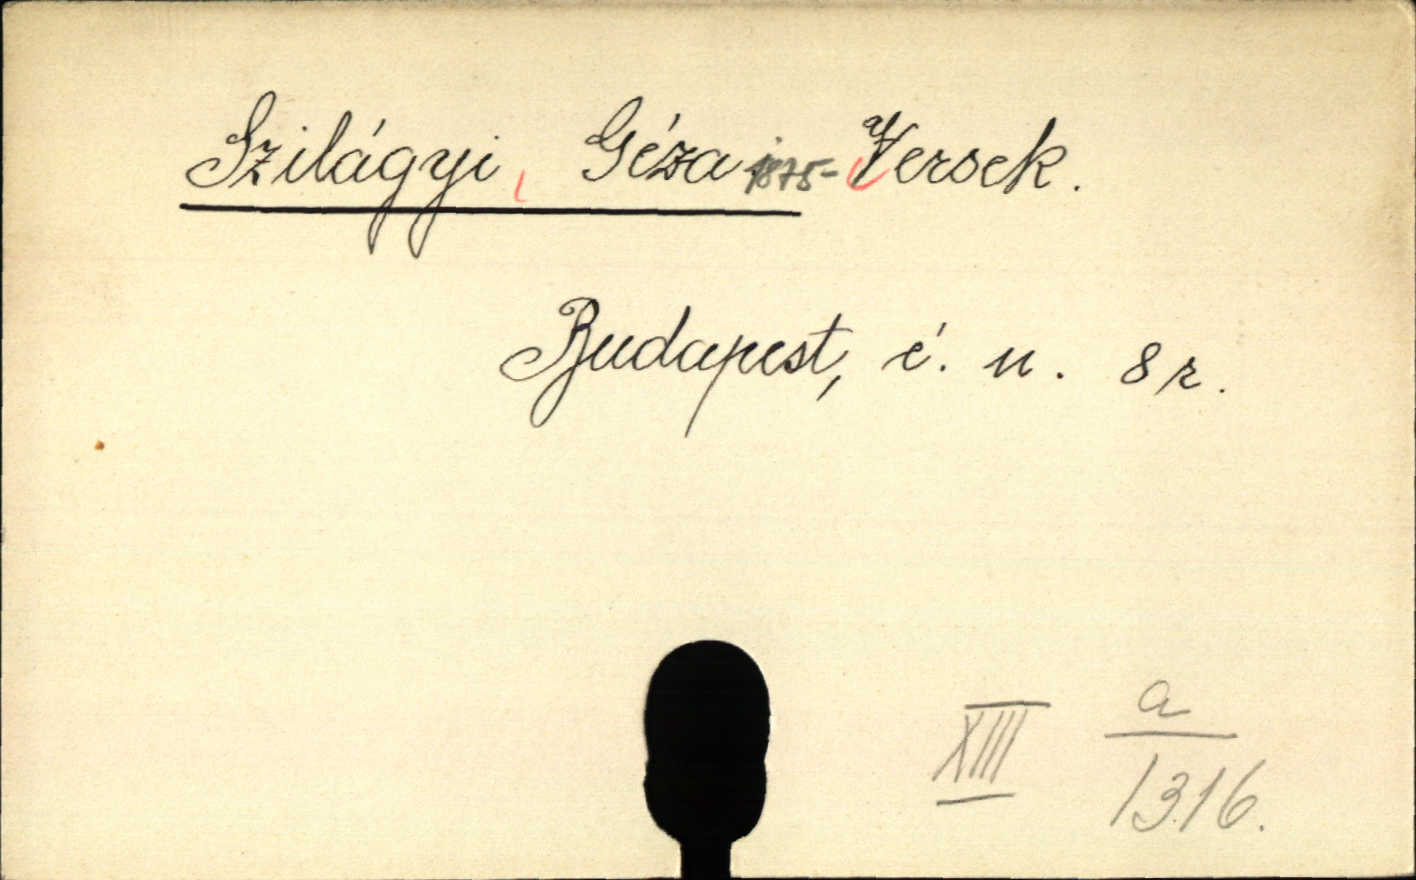 Szilágyi, Géza: 1875- Versek.
Budapest, é. n. 8 r.
XIII a
1316.